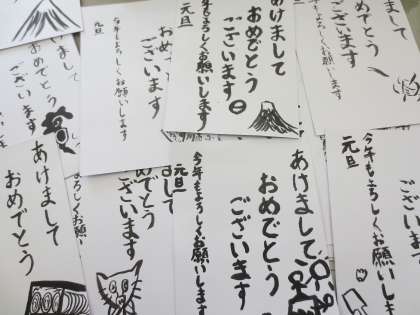 あけまして
おめでとう
ございます
今年もよろしくお願いします
元旦
おめ
ございます
今年もよろしくお願いします
元旦
まして
めでとう
ございます
よろしくお願いします
まして
おめでとう
ございます
あけまして
おめでとう
ございます
今年もよろしくお願いします
元旦
あけまして
おめでとう
まして
めでとう
ございます
よろしくお願い
今年もよろしくお願いします
元旦